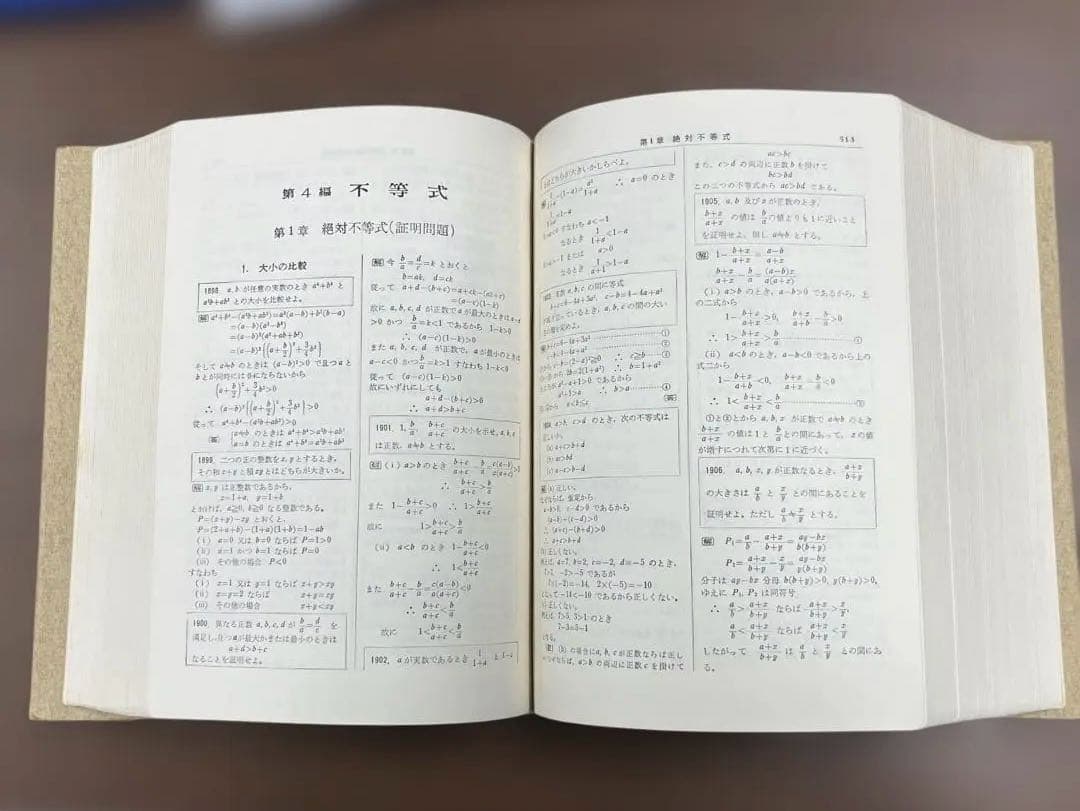 第4編 不等式
第1章 絶対不等式(証明問題)
1. 大小の比較
1898. a, b が任意の実数のとき a⁴+b⁴ と
a³b+ab³ との大小を比較せよ。
解 a⁴+b⁴−(a³b+ab³)=a³(a−b)+b³(b−a)
=(a−b)(a³−b³)
=(a−b)²(a²+ab+b²)
=(a−b)²{(a+b/2)²+3/4b²}
そして a≠b のときは (a−b)²>0 で且つ a と
b とが同時には零にならないから
(a+b/2)²+3/4b²>0
∴ (a−b)²{(a+b/2)²+3/4b²}>0
従って a⁴+b⁴−(a³b+ab³)>0
答 {a≠b のときは a⁴+b⁴>a³b+ab³
a=b のときは a⁴+b⁴=a³b+ab³
1899. 二つの正の整数を x, y とするとき,
その和 x+y と積 xy とはどちらが大きいか。
解 x, y は正整数であるから,
x=1+a, y=1+b
とおけば, a≧0, b≧0 なる整数である。
P=(x+y)−xy とおくと,
P=(2+a+b)−(1+a)(1+b)=1−ab
(i) a=0 又は b=0 ならば P=1>0
(ii) a=1 かつ b=1 ならば P=0
(iii) その他の場合 P<0
すなわち
(i) x=1 又は y=1 ならば x+y>xy
(ii) x=y=2 ならば x+y=xy
(iii) その他の場合 x+y<xy
1900. 異なる正数 a, b, c, d が b/a=d/c を
満足し, 且つ a が最大かまたは最小のときは
a+d>b+c
なることを証明せよ。
解 今 b/a=d/c=k とおくと
b=ak, d=ck
従って a+d−(b+c)=a+ck−(ak+c)
=(a−c)(1−k)
故に a, b, c, d が正数で a が最大のときは a−c
>0 かつ b/a=k<1 であるから 1−k>0
∴ (a−c)(1−k)>0
また a, b, c, d が正数で, a が最小のときは
a−c<0 かつ b/a=k>1 すなわち 1−k<0
従って (a−c)(1−k)>0
故にいずれにしても
a+d−(b+c)>0
∴ a+d>b+c
1901. 1, b/a, b+c/a+c の大小を示せ。a, b, c
は正数, a≠b とする。
(i) a>b のとき b+c/a+c−b/a=c(a−b)/a(a+c)>0
∴ b+c/a+c>b/a
また 1−b+c/a+c>0 ∴ 1>b+c/a+c
故に 1>b+c/a+c>b/a
(ii) a<b のとき 1−b+c/a+c<0
∴ 1<b+c/a+c
また b+c/a+c−b/a=c(a−b)/a(a+c)<0
∴ b+c/a+c<b/a
故に 1<b+c/a+c<b/a
1902. a が実数であるとき 1/1+a と 1−a
第1章 絶対不等式 513
とはどちらが大きいかしらべよ。
−(1−a)=a²/1+a ∴ a=0 のとき
=1−a
すなわち a<−1
なるとき 1/1+a<1−a
>−1 または a>0
なるとき 1/a+1>1−a
数 a, b, c の間に等式
c−b=4−4a+a²
ているとき, a, b, c の間の大い
∴ c≧b
∴ b=1+a²
であるから
a²+1>a ∴ b>a
から a<b≦c
c>d のとき, 次の不等式は
正しいか。
(a) a+c>b+d
(b) ac>bd
(c) a−c>b−d
(a) 正しい。
仮定から
a−b>0, c−d>0 であるから
(a−b)+(c−d)>0
∴ (a+c)−(b+d)>0
∴ a+c>b+d
正しくない。
a=7, b=2, c=−2, d=−5 のとき,
7>2, −2>−5 であるが
7×(−2)=−14, 2×(−5)=−10
−14<−10 であるから正しくない。
正しくない。
7>5, 3>1 のとき
7−3=5−1
なる。
(b) の場合に a, b, c が正数ならば正し
ならば, a>b の両辺に正数 c を掛けて
ac>bc
また, c>d の両辺に正数 b を掛けて
bc>bd
この二つの不等式から ac>bd である。
1905. a, b 及び x が正数のとき,
b+x/a+x の値は b/a の値よりも 1 に近いこと
を証明せよ。但し a≠b とする。
解 1−b+x/a+x=a−b/a+x
b+x/a+x−b/a=(a−b)x/a(a+x)
(i) a>b のとき, a−b>0 であるから, 上
の二式から
1−b+x/a+x>0, b+x/a+x−b/a>0
∴ 1>b+x/a+x>b/a ……①
(ii) a<b のとき, a−b<0 であるから上の
式二から
1−b+x/a+x<0, b+x/a+x−b/a<0
∴ 1<b+x/a+x<b/a ……②
①と②とから a, b, x が正数で a≠b のとき
b+x/a+x の値は 1 と b/a との間にあって, x の値
が増すにつれて次第に 1 に近づく。
1906. a, b, x, y が正数なるとき, a+x/b+y
の大きさは a/b と x/y との間にあることを
証明せよ。ただし a/b≠x/y とする。
解 P₁=a/b−a+x/b+y=ay−bx/b(b+y)
P₂=a+x/b+y−x/y=ay−bx/y(b+y)
分子は ay−bx 分母 b(b+y)>0, y(b+y)>0,
ゆえに P₁, P₂ は同符号
∴ a/b>a+x/b+y ならば a+x/b+y>x/y
a/b<a+x/b+y ならば a+x/b+y<x/y
したがって a+x/b+y は a/b と x/y との間にあ
る。